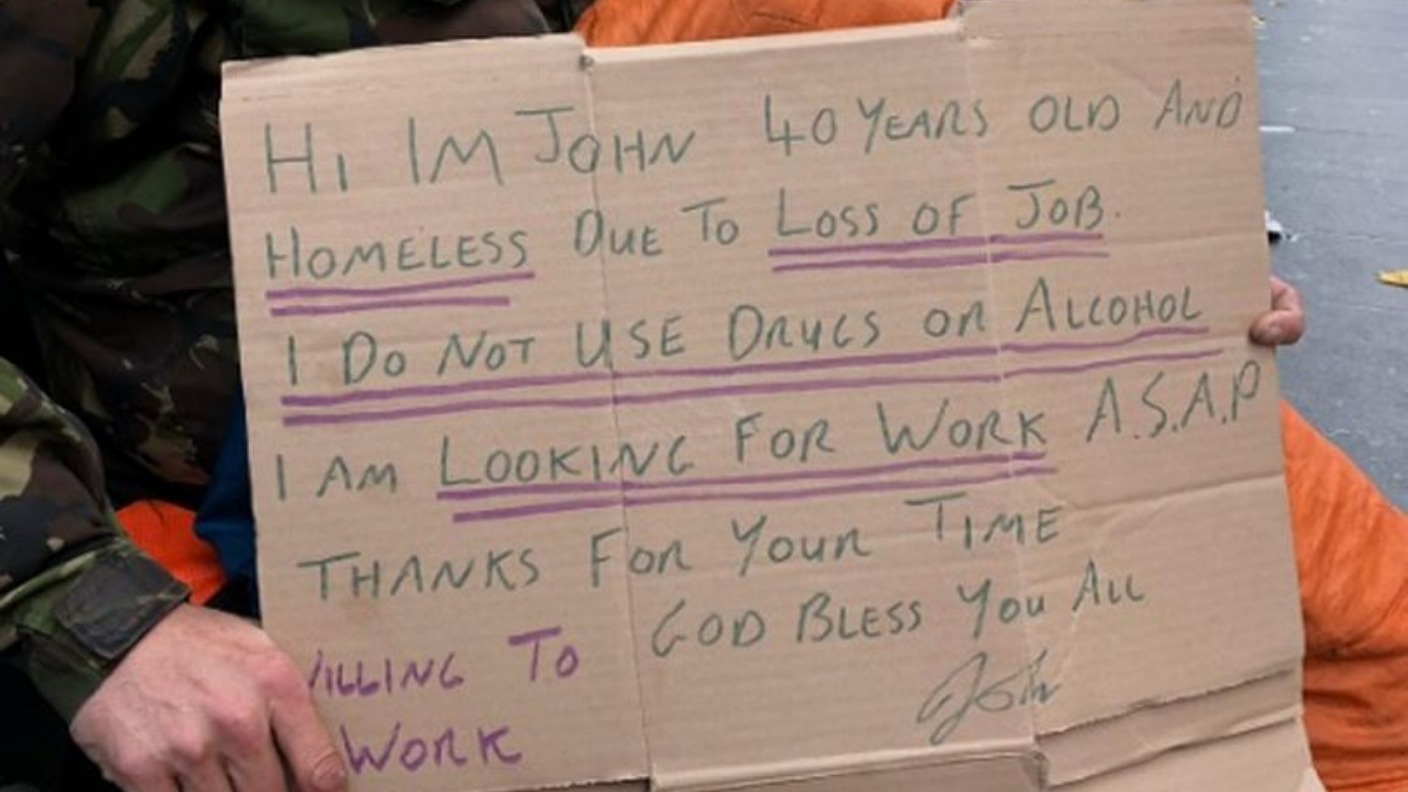 HI IM JOHN 40 YEARS OLD AND
HOMELESS DUE TO LOSS OF JOB.
I DO NOT USE DRUGS OR ALCOHOL
I AM LOOKING FOR WORK A.S.A.P
THANKS FOR YOUR TIME
GOD BLESS YOU ALL
John
WILLING TO
WORK